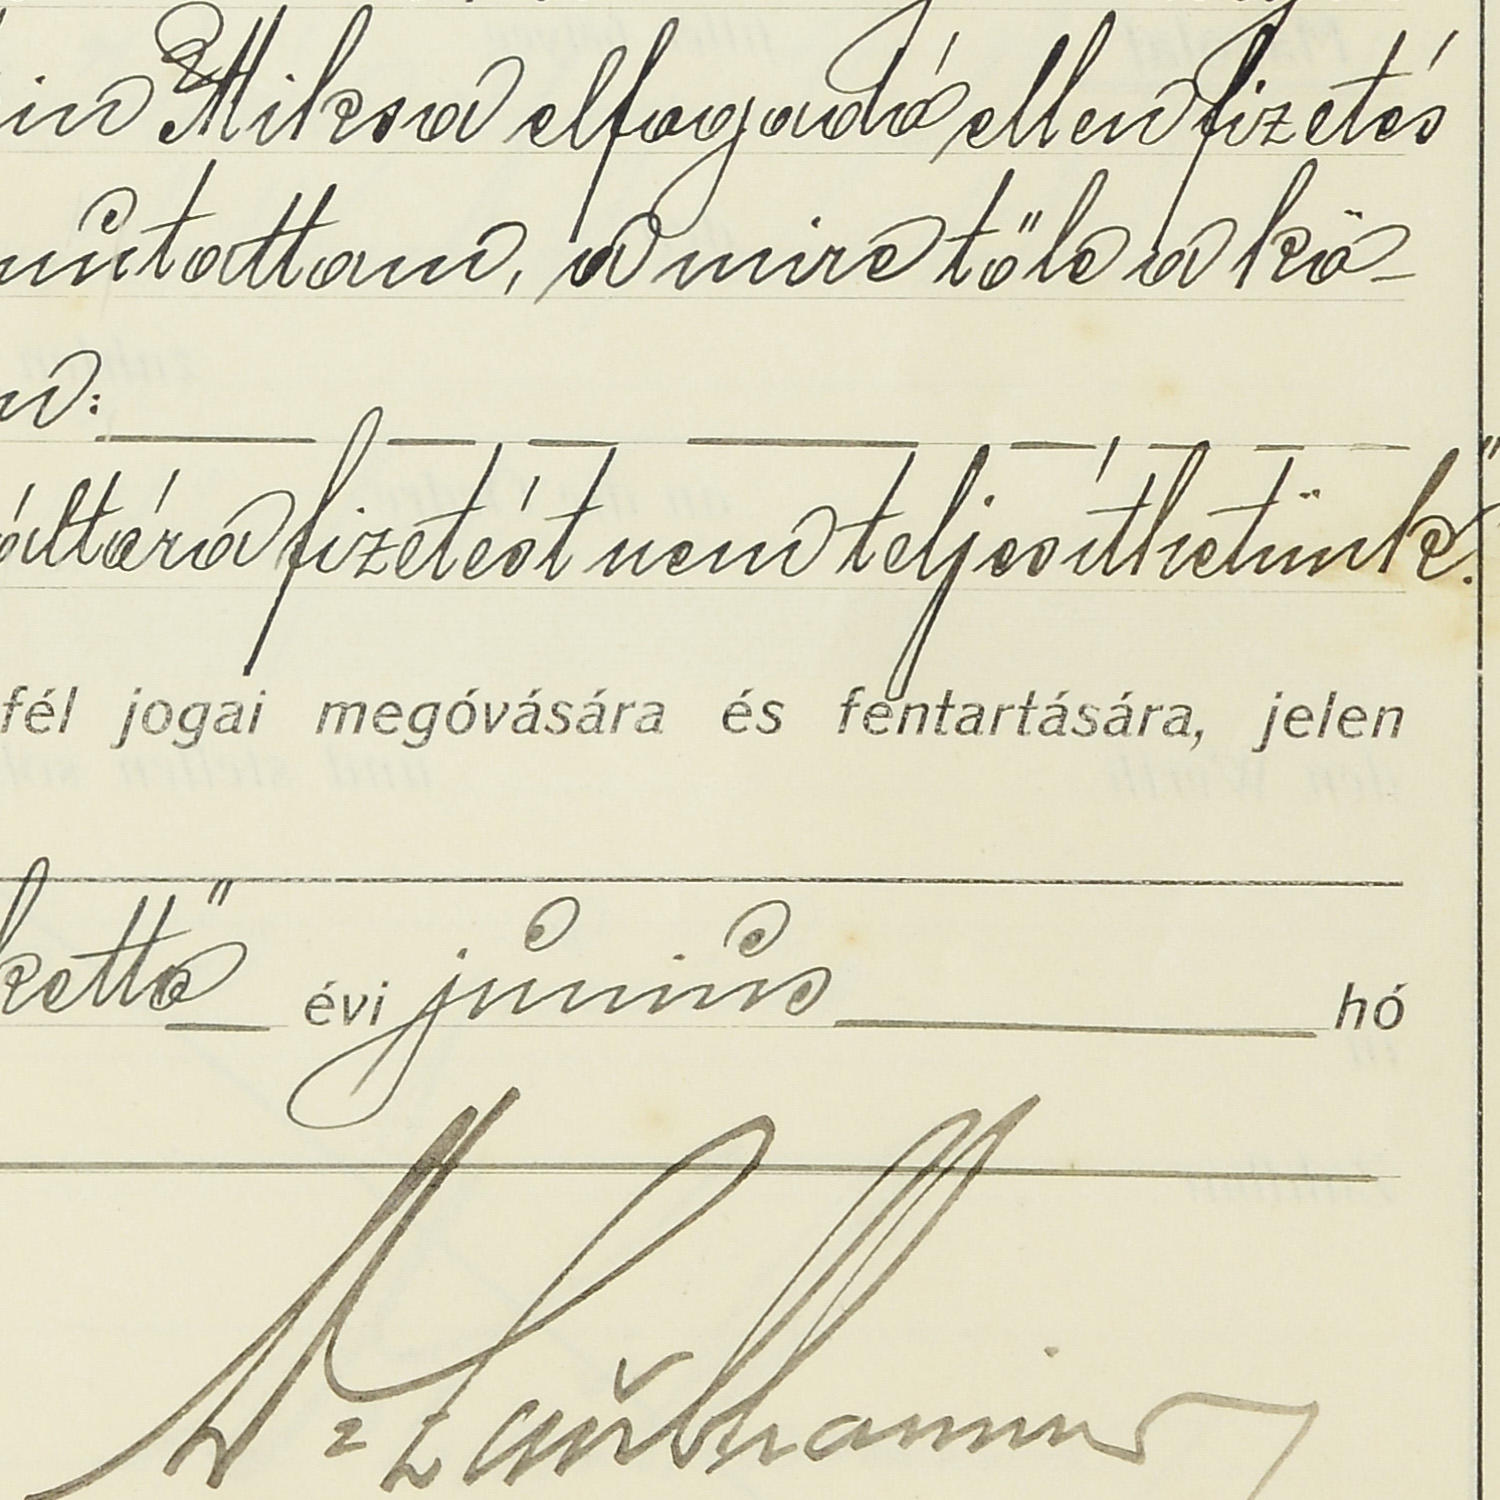 in Miksa elfogadó ellen fizetés
mutattam, a mire tőle a kö-
áltára fizetést nem teljesíthetünk."
fél jogai megóvására és fentartására, jelen
kettő évi június hó